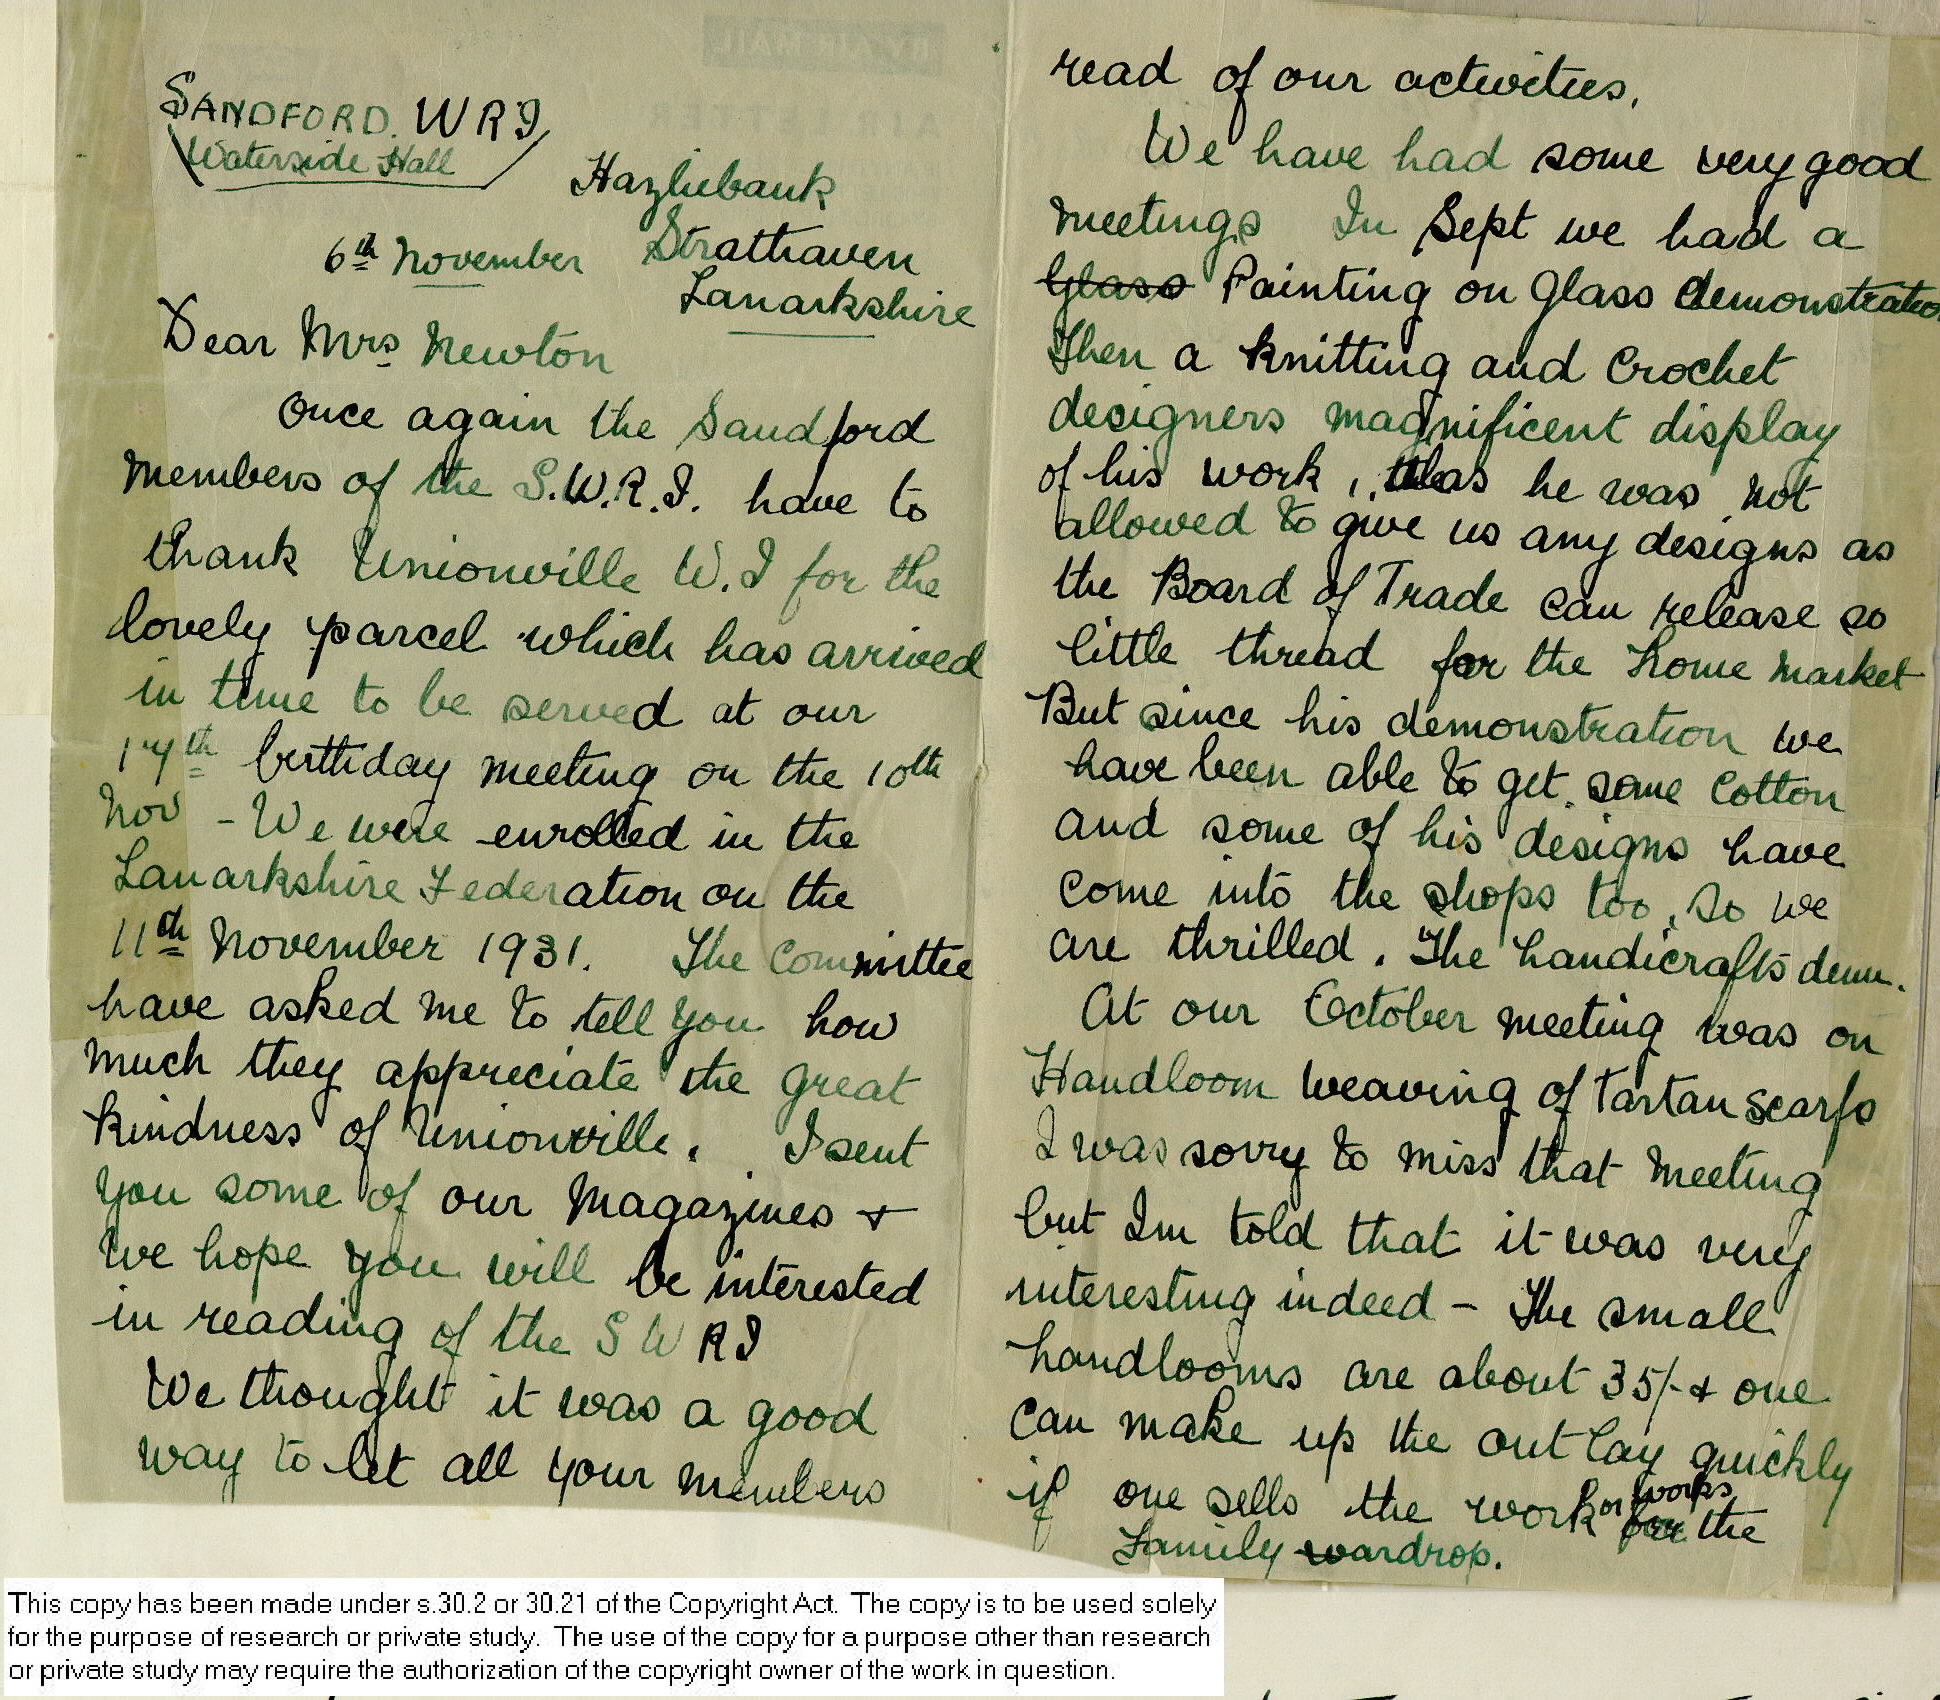 SANDFORD. WRI
Waterside Hall
Hazliebank
Strathaven
Lanarkshire
6th November
Dear Mrs Newton
Once again the Sandford
members of the S.W.R.I. have to
thank Unionville W.I for the
lovely parcel which has arrived
in time to be served at our
17th birthday meeting on the 10th
Nov - We were enrolled in the
Lanarkshire Federation on the
11th November 1931. The Committee
have asked me to tell you how
much they appreciate the great
kindness of Unionville. I sent
you some of our magazines +
we hope you will be interested
in reading of the S W R I
We thought it was a good
way to let all your members
read of our activities.
We have had some very good
meetings In Sept we had a
Glass Painting on Glass demonstration
Then a knitting and Crochet
designers magnificent display
of his work, as he was not
allowed to give us any designs as
the Board of Trade can release so
little thread for the home market
But since his demonstration we
have been able to get some Cotton
and some of his designs have
come into the shops too, so we
are thrilled. The handicrafts dem.
At our October meeting was on
Handloom weaving of Tartan scarfs
I was sorry to miss that meeting
but Im told that it was very
interesting indeed - The small
handlooms are about 35/- + one
can make up the outlay quickly
if one sells the work or works for the
Family wardrop.
This copy has been made under s.30.2 or 30.21 of the Copyright Act. The copy is to be used solely
for the purpose of research or private study. The use of the copy for a purpose other than research
or private study may require the authorization of the copyright owner of the work in question.